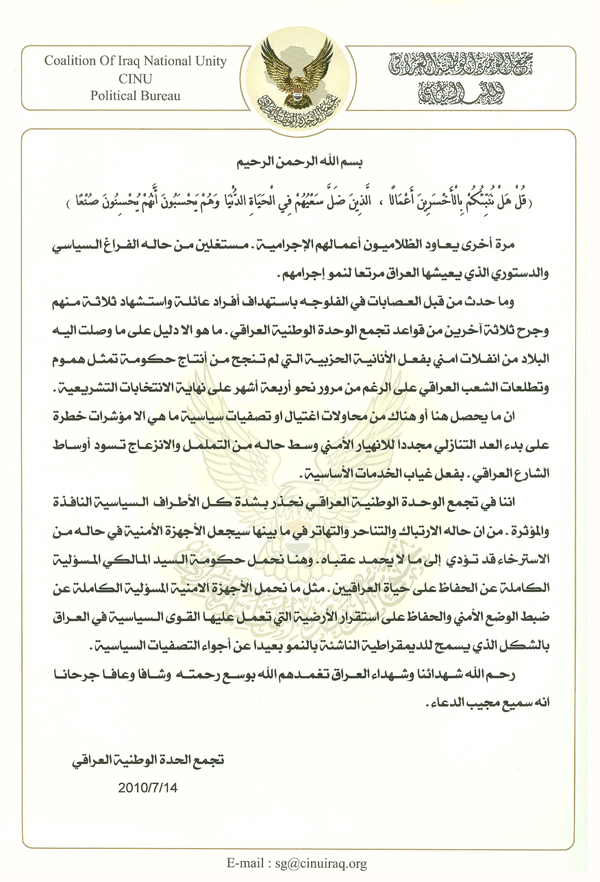 Coalition Of Iraq National Unity
CINU
Political Bureau
تجمع الوحدة الوطنية العراقي
المكتب السياسي
بسم الله الرحمن الرحيم
( قُلْ هَلْ نُنَبِّئُكُمْ بِالْأَخْسَرِينَ أَعْمَالًا ، الَّذِينَ ضَلَّ سَعْيُهُمْ فِي الْحَيَاةِ الدُّنْيَا وَهُمْ يَحْسَبُونَ أَنَّهُمْ يُحْسِنُونَ صُنْعًا )
مرة أخرى يعاود الظلاميون أعمالهم الإجرامية . مستغلين من حاله الفراغ السياسي
والدستوري الذي يعيشها العراق مرتعا لنمو إجرامهم .
وما حدث من قبل العصابات في الفلوجه باستهداف أفراد عائلة واستشهاد ثلاثة منهم
وجرح ثلاثة آخرين من قواعد تجمع الوحدة الوطنية العراقي . ما هو الا دليل على ما وصلت اليه
البلاد من انفلات امني بفعل الأنانية الحزبية التي لم تنجح من أنتاج حكومة تمثل هموم
وتطلعات الشعب العراقي على الرغم من مرور نحو أربعة أشهر على نهاية الانتخابات التشريعية .
ان ما يحصل هنا أو هناك من محاولات اغتيال او تصفيات سياسية ما هي الا مؤشرات خطرة
على بدء العد التنازلي مجددا للانهيار الأمني وسط حاله من التململ والانزعاج تسود أوساط
الشارع العراقي . بفعل غياب الخدمات الأساسية .
اننا في تجمع الوحدة الوطنية العراقي نحذر بشدة كل الأطراف السياسية النافذة
والمؤثرة . من ان حاله الارتباك والتناحر والتهاتر في ما بينها سيجعل الأجهزة الأمنية في حاله من
الاسترخاء قد تؤدي إلى ما لا يحمد عقباه . وهنا نحمل حكومة السيد المالكي المسؤلية
الكاملة عن الحفاظ على حياة العراقيين . مثل ما نحمل الأجهزة الامنية المسؤلية الكاملة عن
ضبط الوضع الأمني والحفاظ على استقرار الأرضية التي تعمل عليها القوى السياسية في العراق
بالشكل الذي يسمح للديمقراطية الناشئة بالنمو بعيدا عن أجواء التصفيات السياسية .
رحم الله شهدائنا وشهداء العراق تغمدهم الله بوسع رحمته وشافا وعافا جرحانا
انه سميع مجيب الدعاء .
تجمع الحدة الوطنية العراقي
2010/7/14
E-mail : sg@cinuiraq.org